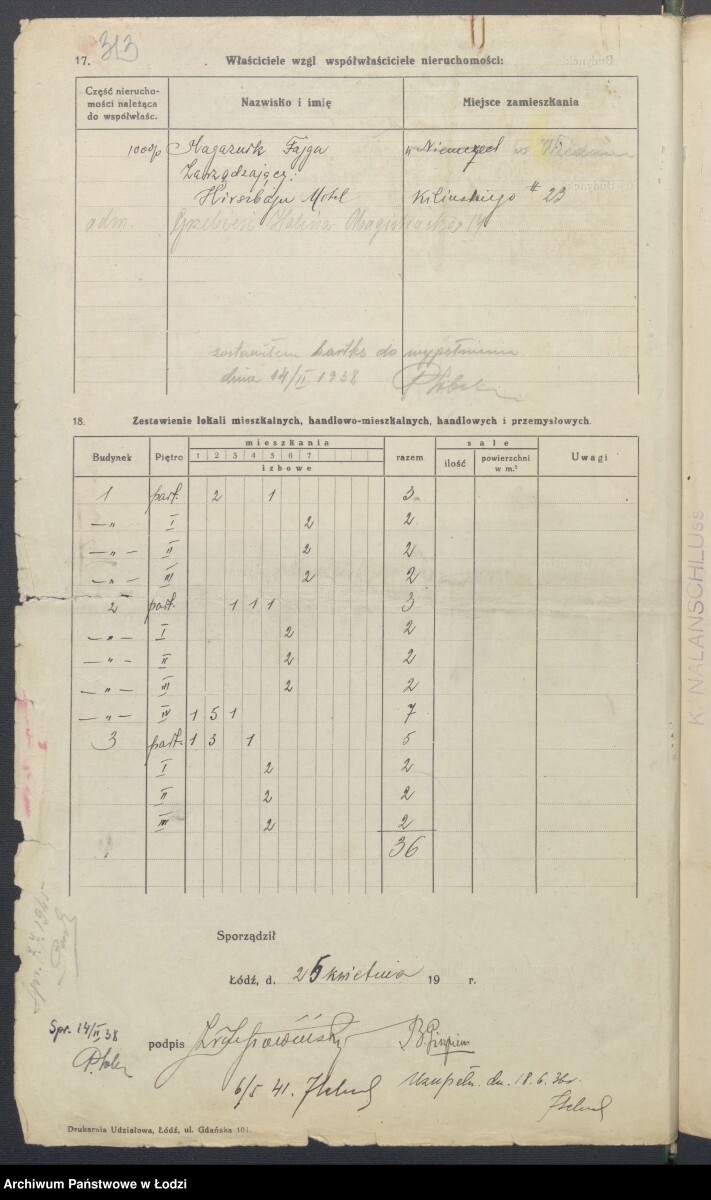 313
17. Właściciele wzgl. współwłaściciele nieruchomości:
Część nierucho-
mości należąca
do współwłaśc.
Nazwisko i imię
Miejsce zamieszkania
100% Magaznik Fajga
w Niemczech
Zarządzający:
Hirszbajn Motel Kilińskiego # 23
adm. Halina 14
zostawiłem kartkę do wypełnienia
dnia 14/II 1938
18. Zestawienie lokali mieszkalnych, handlowo-mieszkalnych, handlowych i przemysłowych.
Budynek Piętro mieszkania razem sale Uwagi
1 2 3 4 5 6 7
izbowe
ilość powierzchni w m.²
1 part. 2 1 3
—„— I 2 2
—„— II 2 2
—„— III 2 2
2 part. 1 1 1 3
—„— I 2 2
—„— II 2 2
—„— III 2 2
—„— IV 1 5 1 7
3 part. 1 3 1 5
I 2 2
II 2 2
III 2 2
36
Sporządził
Łódź, d. 25 kwietnia 19 r.
Spr. 14/II 38
podpis
6/5 41.
Uzupełn. dn. 18.6.36r.
Drukarnia Udziałowa, Łódź, ul. Gdańska 101.
KANALANSCHLUSS
Archiwum Państwowe w Łodzi